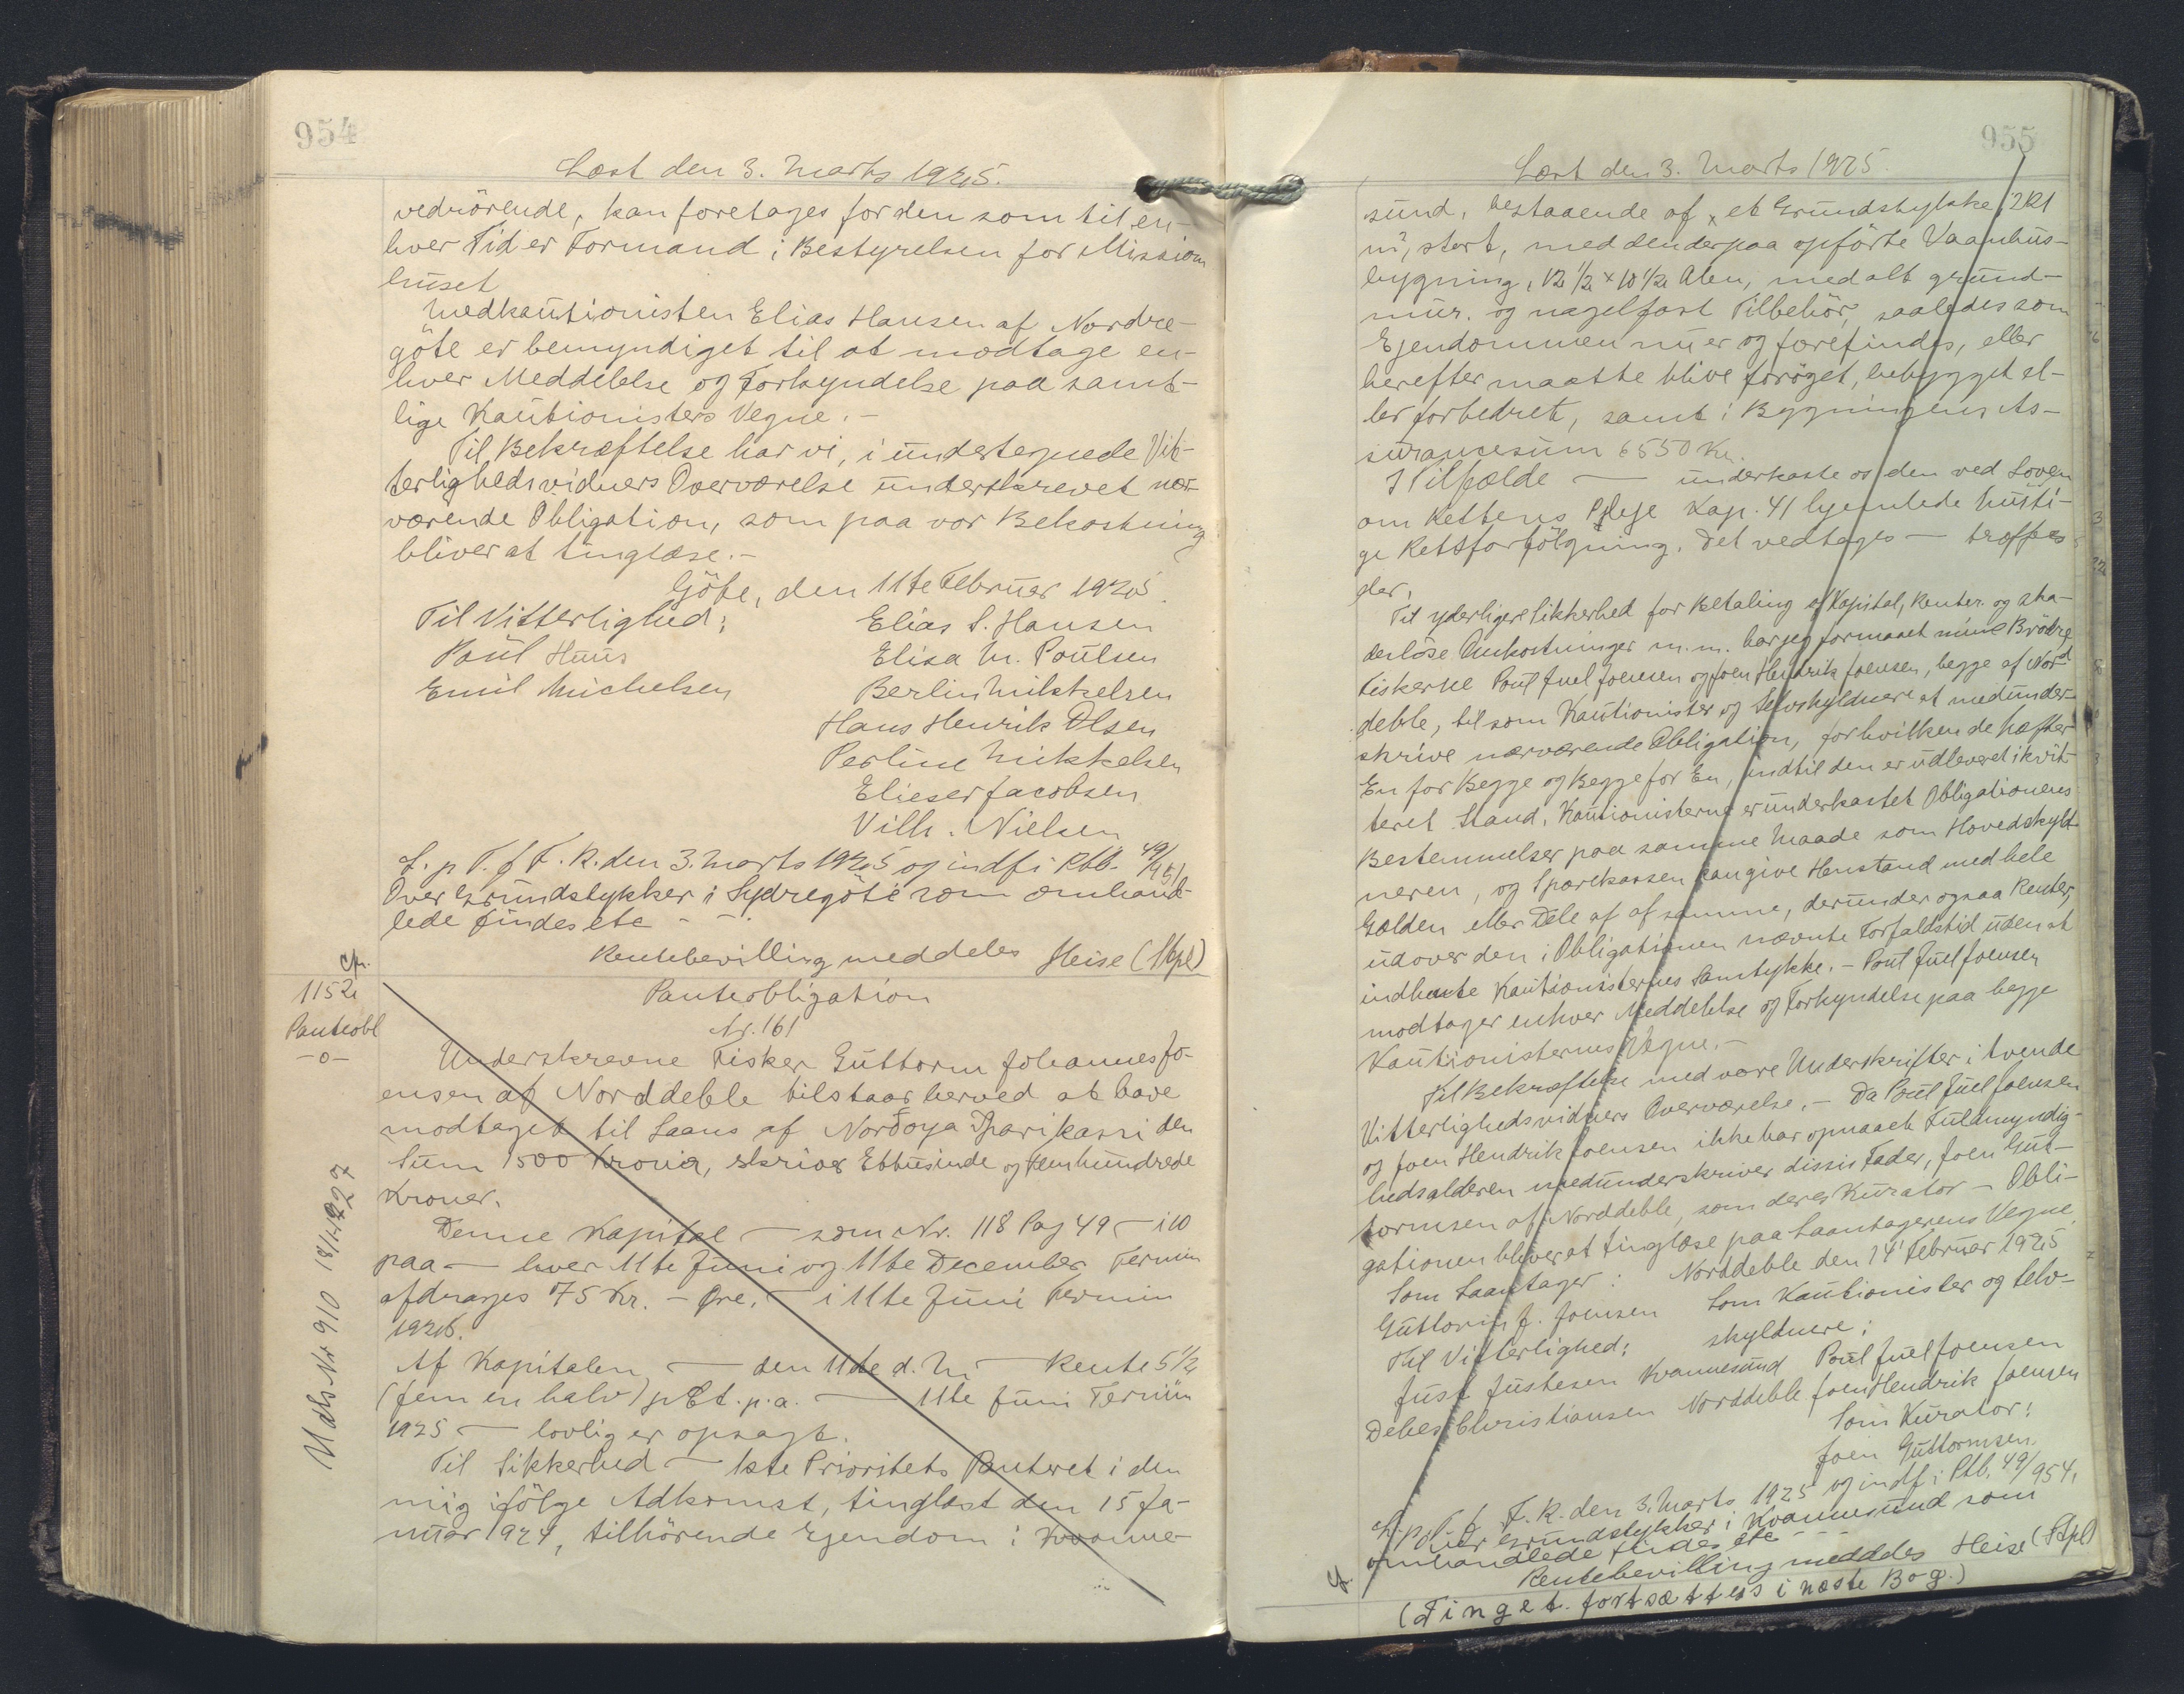 954
Læst den 3. Marts 1925.
vedrörende, kan foretages for den som til en-
hver Tid er Formand i Bestyrelsen for Mission
huset
Medkautionisten Elias Hansen af Nordre-
göte er bemyndiget til at modtage en-
hver Meddelelse og Forkyndelse paa samt-
lige Kautionisters Vegne. -
Til Bekræftelse har vi, i undertegnede Vit-
terlighedsvidners Overværelse underskrevet nær-
værende Obligation, som paa vor Bekostning
bliver at tinglæse. -
Göte, den 11te Februar 1925.
Til Vitterlighed: Elias S. Hansen
Poul Huus Elisa M. Poulsen
Emil Michelsen Berlin Mikkelsen
Hans Henrik Olsen
Perline Mikkelsen
Elieser Jacobsen
Vilh. Nielsen
L. p T. f F. R. den 3. Marts 1925 og indf i Ptb. 49/951
Over Grundstykker i Sydregöte som omhand-
lede findes etc - -
Rentebevilling meddeles Heise (Stpl)
1152
Panteobl
-o-
Panteobligation
Nr. 161
Underskrevne Fisker Guttorm Johannes Jo-
ensen af Norddeble tilstaar herved at have
modtaget til Laans af Nordoya Sparikassi den
Sum 1500 Kroner, skriver Ettusinde og Femhundrede
Kroner.
Denne Kapital - som Nr. 118 Pag 49 - i 10
paa - hver 11te Juni og 11te December Termin
afdrages 75 Kr. - Øre. - i 11te Juni Termin
1926.
Af Kapitalen - den 11te d. M. - Rente 5 1/2
(fem en halv) pCt. p.a. - 11te Juni Termin
1925 - lovlig er opsagt.
Til Sikkerhed - 1ste Prioritets Panteret i den
mig ifölge Adkomst, tinglæst den 15 Ja-
nuar 1924, tilhörende Ejendom i Kvanne-
Udls Nr 910 18/4 1927
955
Læst den 3. Marts 1925.
sund, bestaaende af et Grundstykke, 2121
m², stort, med den derpaa opförte Vaanhus-
bygning, 12 1/2 x 10 1/2 Alen, med alt grund-
mur. og nagelfast Tilbehör, saaledes som
Ejendommen nu er og forefindes, eller
herefter maatte blive foröget, bebygget el-
ler forbedret, samt i Bygningens As-
surancesum 6550 Kr.
I Tilfælde - underkaste os den ved Loven
om Rettens Pleje Kap. 41 hjemlede hurti-
ge Retsforfölgning. Det vedtages - træffes
der.
Til yderligere Sikkerhed for Betaling af Kapital, Renter. og ska-
deslöse Omkostninger m.m. har jeg formaaet mine Brödre
Fiskerne Poul Juel Joensen og Joen Hendrik Joensen, begge af Nord
deble, til som Kautionister og Selvskyldnere at medunder-
skrive nærværende Obligation, for hvilken de hæfter
En for Begge og Begge for En, indtil den er udleveret i kvit-
teret Stand. Kautionisterne er underkastet Obligationens
Bestemmelser paa samme Maade som Hovedskyld-
neren, og Sparekassen kan give Henstand med hele
Gælden eller Dele af af samme, derunder ogsaa Renter,
udover den i Obligationen nævnte Forfaldstid uden at
indhente Kautionisternes Samtykke. - Poul Juel Joensen
modtager enhver Meddelelse og Forkyndelse paa begge
Kautionisternes Vegne. -
Til Bekræftelse med vore Underskrifter i tvende
Vitterlighedsvidners Overværelse. - Da Poul Juel Joensen
og Joen Hendrik Joensen ikke har opnaaet Fuldmyndig-
hedsalderen medunderskriver disses Fader, Joen Gut-
tormsen af Norddeble, som deres Kurator - Obli-
gationen bliver at tinglæse paa Laantagerens Vegne.
Som Laantager: Norddeble den 14' Februar 1925
Guttorm J. Joensen Som Kautionister og Selv-
Til Vitterlighed: skyldnere:
Just Justesen Kvannesund Poul Juel Joensen
Debes Christiansen Norddeble Joen Hendrik Joensen
Som Kurator:
Joen Guttormsen
L. p T. f F. R. den 3. Marts 1925 og indf i Ptb. 49/954.
Over Grundstykker i Kvannesund som
omhandlede findes etc - - -
Rentebevilling meddeles Heise (Stpl)
(Tinget. fortsættes i næste Bog.)